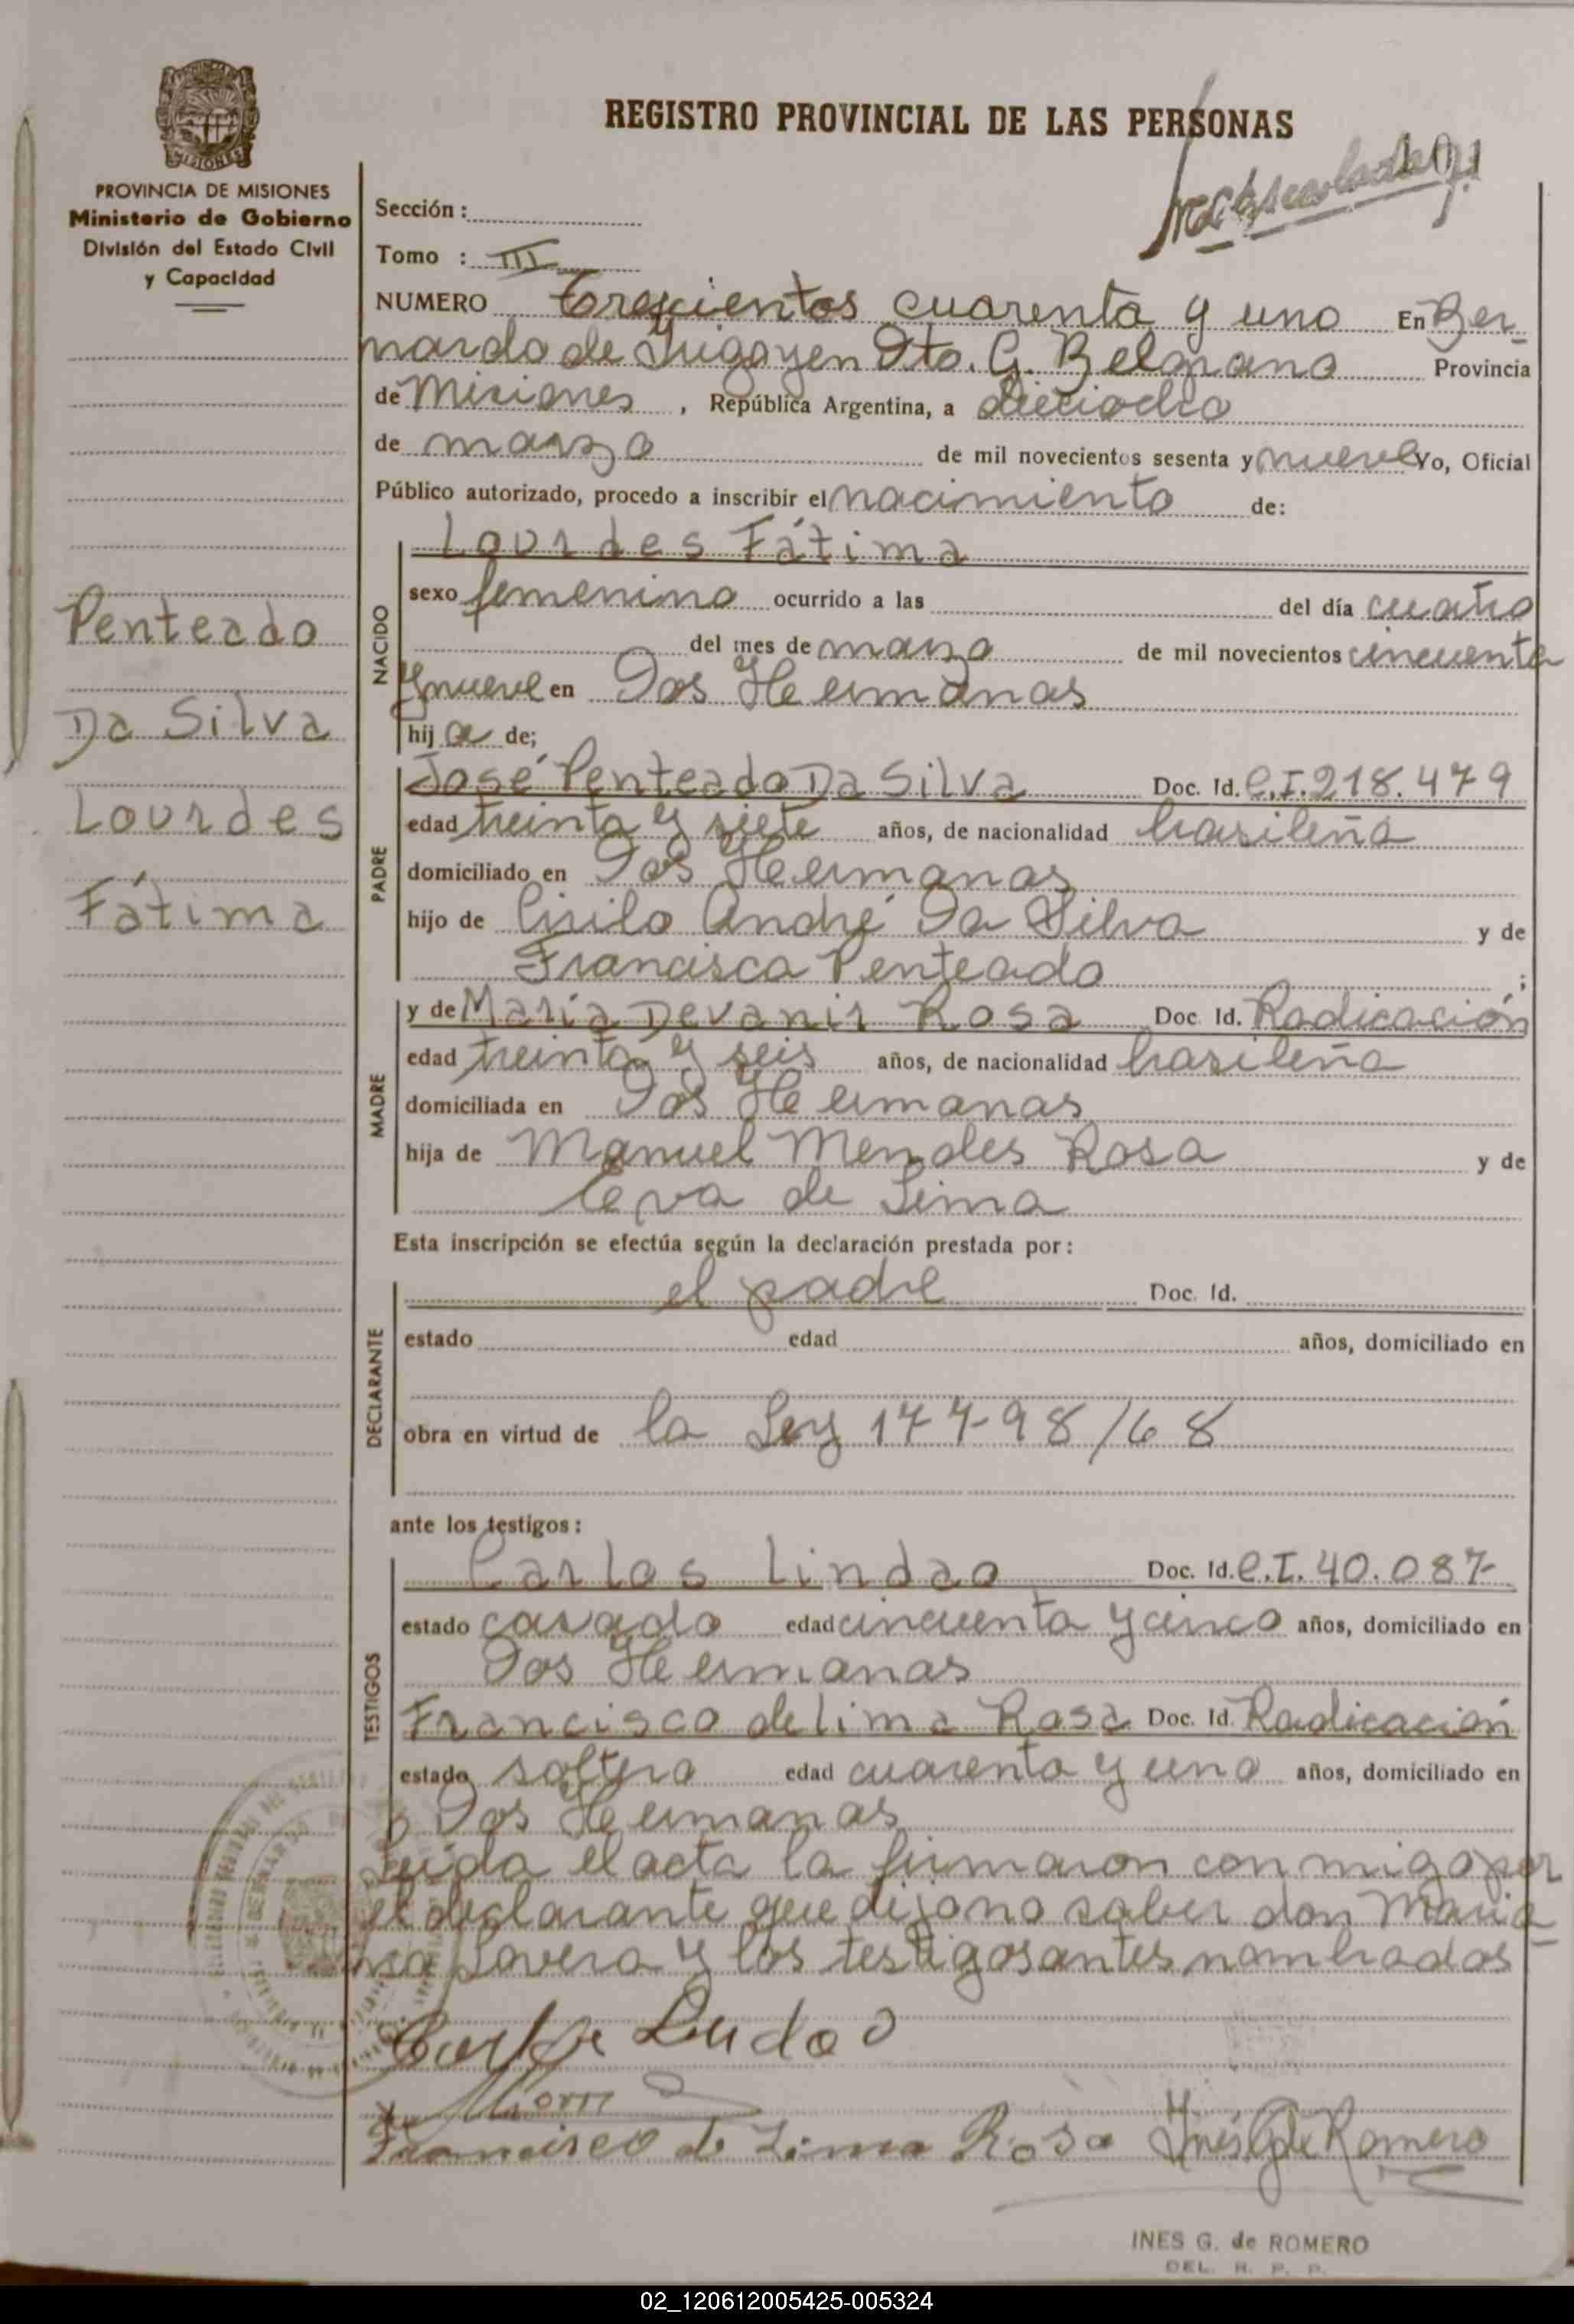 REGISTRO PROVINCIAL DE LAS PERSONAS
MISIONES
PROVINCIA DE MISIONES
Ministerio de Gobierno
División del Estado Civil
y Capacidad
Sección :
Tomo : III
NUMERO Trescientos cuarenta y uno En Ber-
nardo de Irigoyen Dto. G. Belgrano Provincia
de Misiones , República Argentina, a dieciocho
de marzo de mil novecientos sesenta y nueve Yo, Oficial
Público autorizado, procedo a inscribir el nacimiento de:
Lourdes Fátima
NACIDO
sexo femenino ocurrido a las del día cuatro
del mes de marzo de mil novecientos cincuenta
y nueve en Dos Hermanas
hija de;
Penteado
Da Silva
Lourdes
Fátima
PADRE
José Penteado Da Silva Doc. Id. C.I. 218.479
edad treinta y siete años, de nacionalidad brasileña
domiciliado en Dos Hermanas
hijo de Cirilo André Da Silva y de
Francisca Penteado ;
MADRE
y de María Devanir Rosa Doc. Id. Radicación
edad treinta y seis años, de nacionalidad brasileña
domiciliada en Dos Hermanas
hija de Manuel Mendes Rosa y de
Eva de Lima
Esta inscripción se efectúa según la declaración prestada por:
DECLARANTE
el padre Doc. Id.
estado edad años, domiciliado en
obra en virtud de la Ley 177-98/68
ante los testigos:
TESTIGOS
Carlos Lindao Doc. Id. C.I. 40.087
estado casado edad cincuenta y cinco años, domiciliado en
Dos Hermanas
Francisco de Lima Rosa Doc. Id. Radicación
estado soltero edad cuarenta y uno años, domiciliado en
Dos Hermanas
Leída el acta la firmaron conmigo por
el declarante que dijo no saber don Maria-
no Lovera y los testigos antes nombrados
Francisco de Lima Rosa Inés G de Romero
INES G. de ROMERO
DEL. R. P. P.
02_120612005425-005324